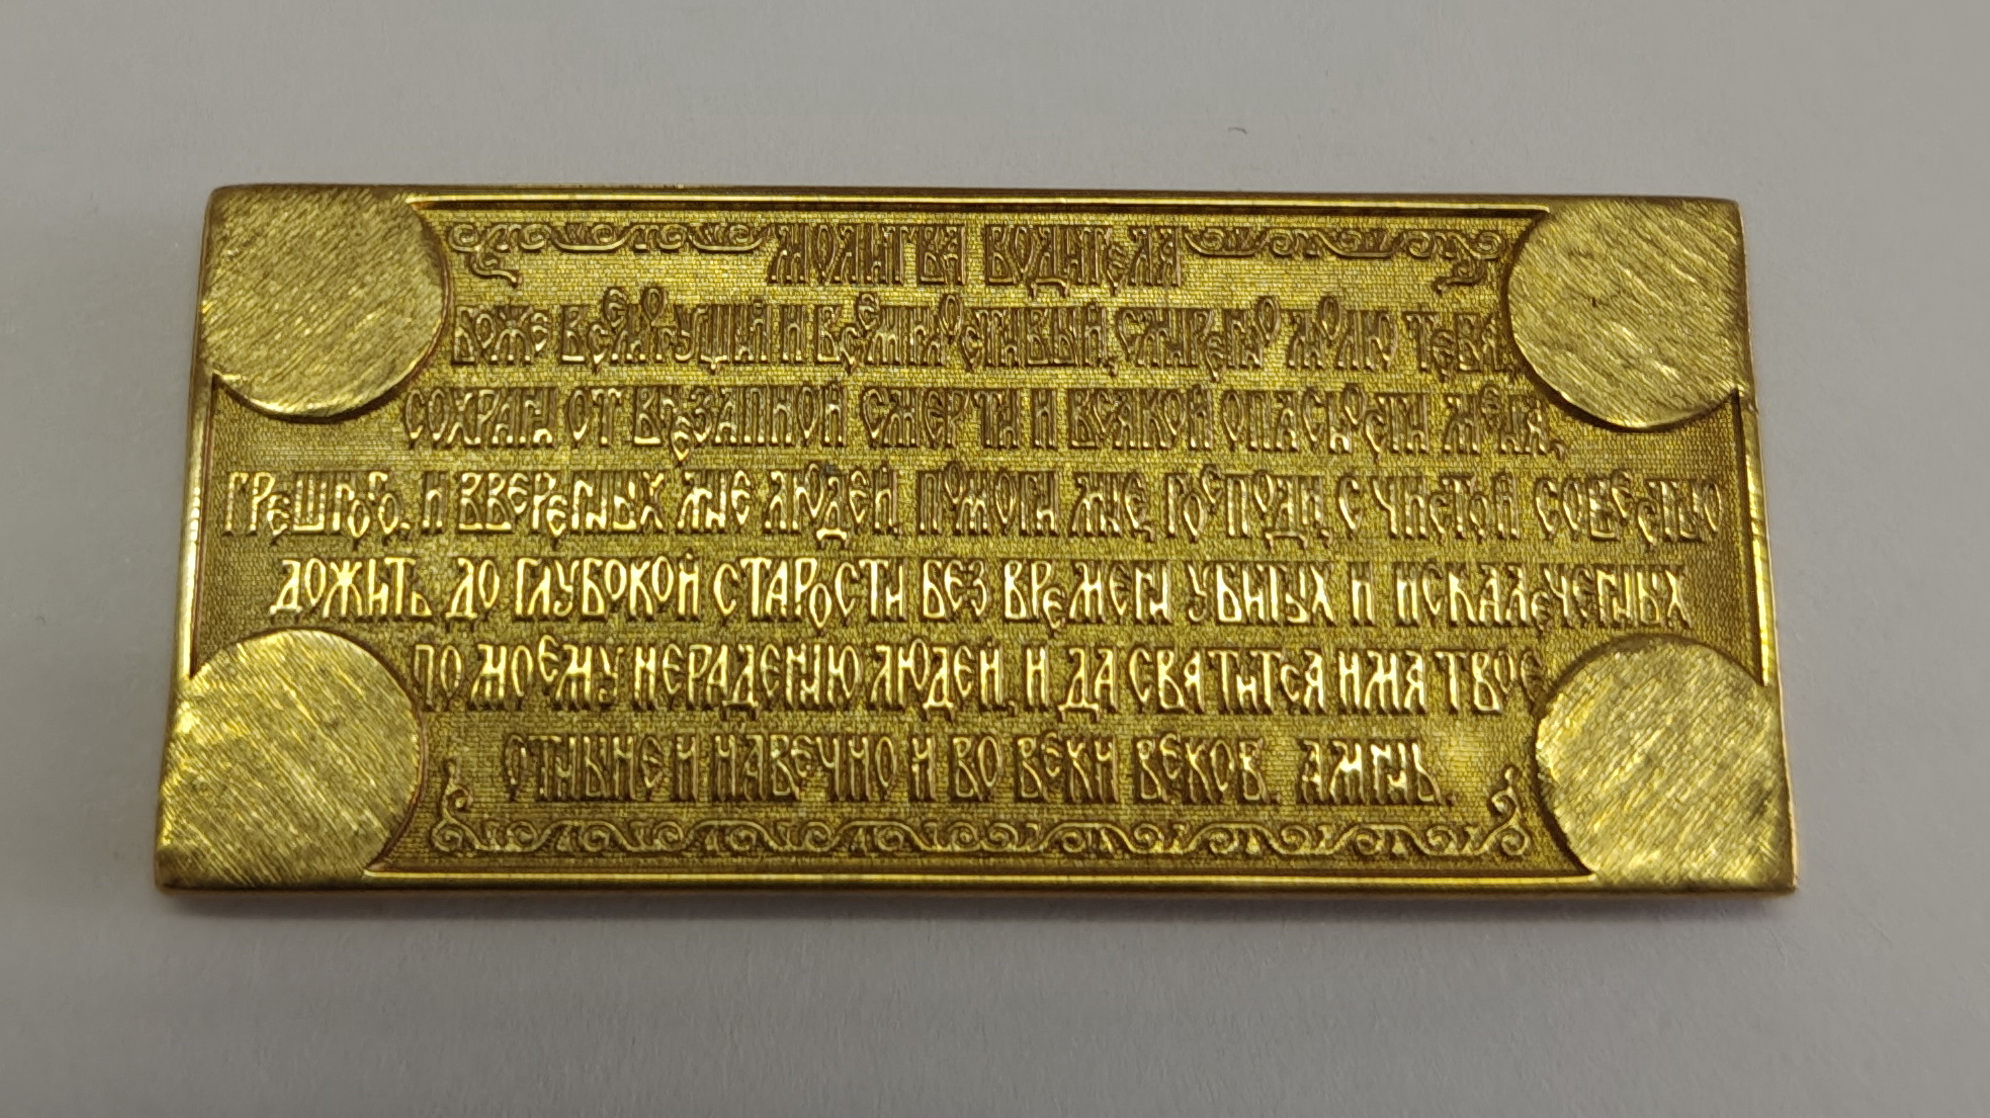 МОЛИТВА ВОДИТЕЛЯ
БОЖЕ ВСЕМОГУЩИЙ И ВСЕМИЛОСТИВЫЙ, СМИРЕННО МОЛЮ ТЕБЯ
СОХРАНИ ОТ ВНЕЗАПНОЙ СМЕРТИ И ВСЯКОЙ ОПАСНОСТИ МЕНЯ,
ГРЕШНОГО, И ВВЕРЕННЫХ МНЕ ЛЮДЕЙ, ПОМОГИ МНЕ, ГОСПОДИ, С ЧИСТОЙ СОВЕСТЬЮ
ДОЖИТЬ ДО ГЛУБОКОЙ СТАРОСТИ БЕЗ ВРЕМЕНИ УБИТЫХ И ИСКАЛЕЧЕННЫХ
ПО МОЕМУ НЕРАДЕНИЮ ЛЮДЕЙ, И ДА СВЯТИТСЯ ИМЯ ТВОЕ
ОТНЫНЕ И НАВЕЧНО И ВО ВЕКИ ВЕКОВ. АМИНЬ.